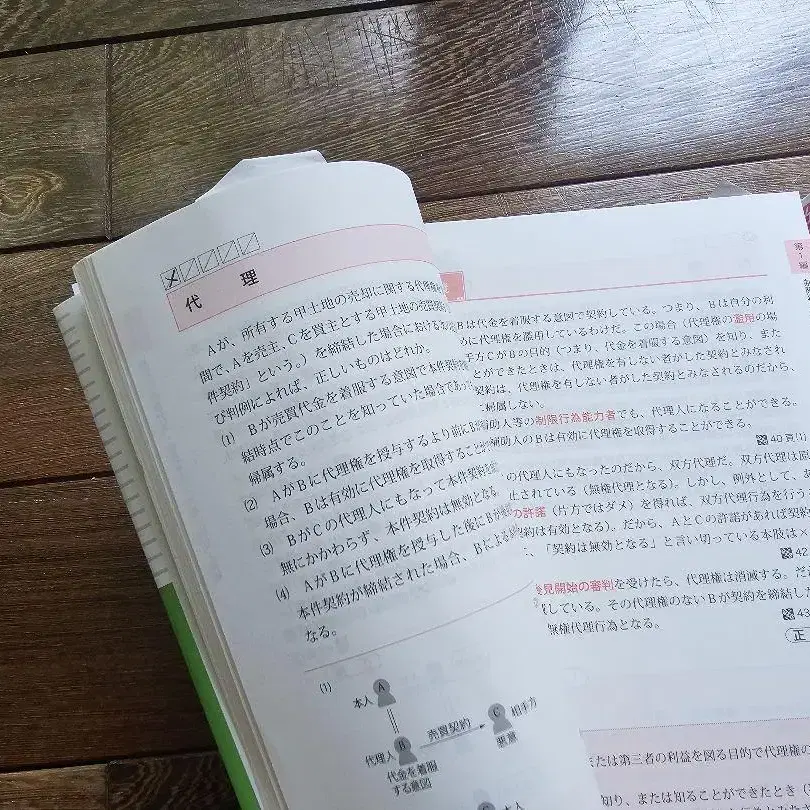 代理
Aが、所有する甲土地の売却に関する代理
間で、Aを売主、Cを買主とする甲土地の売買
件契約」という。）を締結した場合における
び判例によれば、正しいものはどれか。
(1) Bが売買代金を着服する意図で本件契約
結時点でこのことを知っていた場合であっ
帰属する。
(2) AがBに代理権を授与するより前にB
場合、Bは有効に代理権を取得すること
(3) BがCの代理人にもなって本件契約
無にかかわらず、本件契約は無効となる
(4) AがBに代理権を授与した後にBが
本件契約が締結された場合、Bによる
なる。
(1)
本人 A
代理人 B
代金を着服
する意図
売買契約
C 相手方
悪意
本人
第1編
Bは代金を着服する意図で契約している。つまり、Bは自分の利
めに代理権を濫用しているわけだ。この場合（代理権の濫用の場
手方CがBの目的（つまり、代金を着服する意図）を知り、また
とができたときは、代理権を有しない者がした契約とみなされ
契約は、代理権を有しない者がした契約とみなされるのだから、
帰属しない。
助人等の制限行為能力者でも、代理人になることができる。
補助人のBは有効に代理権を取得することができる。
40頁(1)
の代理人にもなったのだから、双方代理だ。双方代理は原
止されている（無権代理となる）。しかし、例外として、
の許諾（片方ではダメ）を得れば、双方代理行為を行う
契約は有効となる）。だから、AとCの許諾があれば契約
、「契約は無効となる」と言い切っている本肢は×
42
後見開始の審判を受けたら、代理権は消滅する。だ
している。その代理権のないBが契約を締結した
無権代理行為となる。
43
正
または第三者の利益を図る目的で代理権の
知り、または知ることができたとき